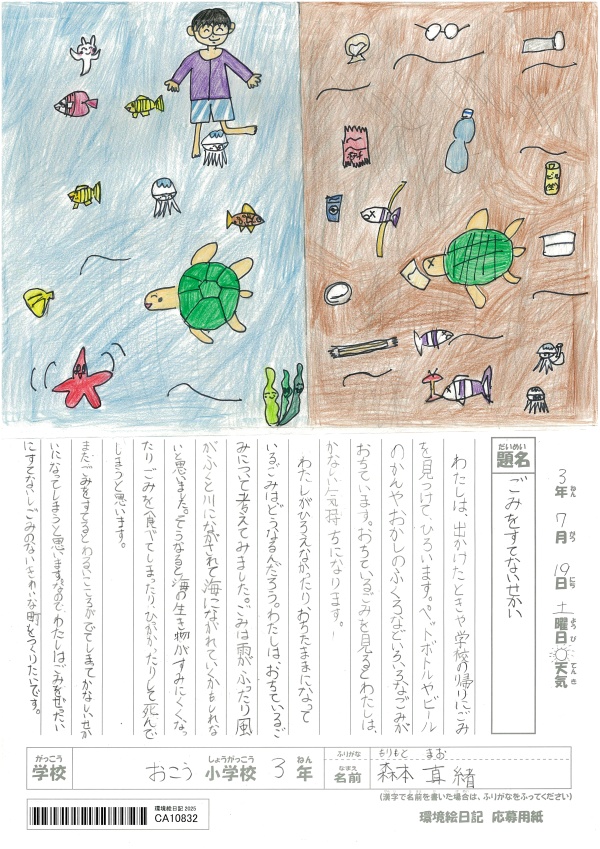 3年 7月 19日 土曜日 天気
ねん がつ にち ようび てんき
だいめい
題名
ごみをすてないせかい
わたしは、出かけたときや学校の帰りにごみ
を見つけて、ひろいます。ペットボトルやビール
のかんやおかしのふくろなどいろいろなごみが
おちています。おちているごみを見るとわたしは、
かなしい気持ちになります。
わたしがひろえなかったりおちたままになって
いるごみはどうなるんだろう。わたしは、おちているご
みについて考えてみました。ごみは雨がふったり風
がふくと川にながされて海にながれていくかもしれな
いと思いました。そうなると海の生き物がすみにくくなっ
たりごみを食べてしまったり、ひっかかったりして死んで
しまうと思います。
またごみをすてるとわるいこころがでてしまってかなしいせか
いになってしまうと思います。なのでわたしはごみをぜったい
にすてないしごみのないきれいな町をつくりたいです。
がっこう
学校
おこう
しょうがっこう
小学校
3
ねん
年
ふりがな
もりもと まお
なまえ
名前
森本 真緒
(漢字で名前を書いた場合は、ふりがなをふってください)
環境絵日記 2025
CA10832
環境絵日記 応募用紙